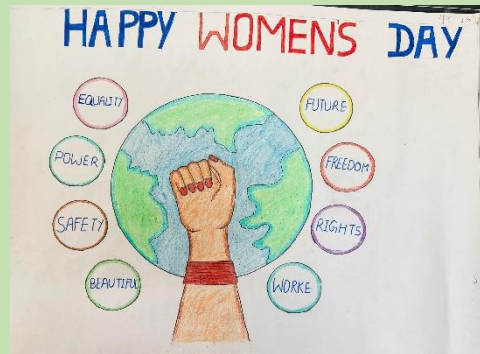 HAPPY WOMEN'S DAY
EQUALITY
POWER
SAFETY
BEAUTIFUL
FUTURE
FREEDOM
RIGHTS
WORKE